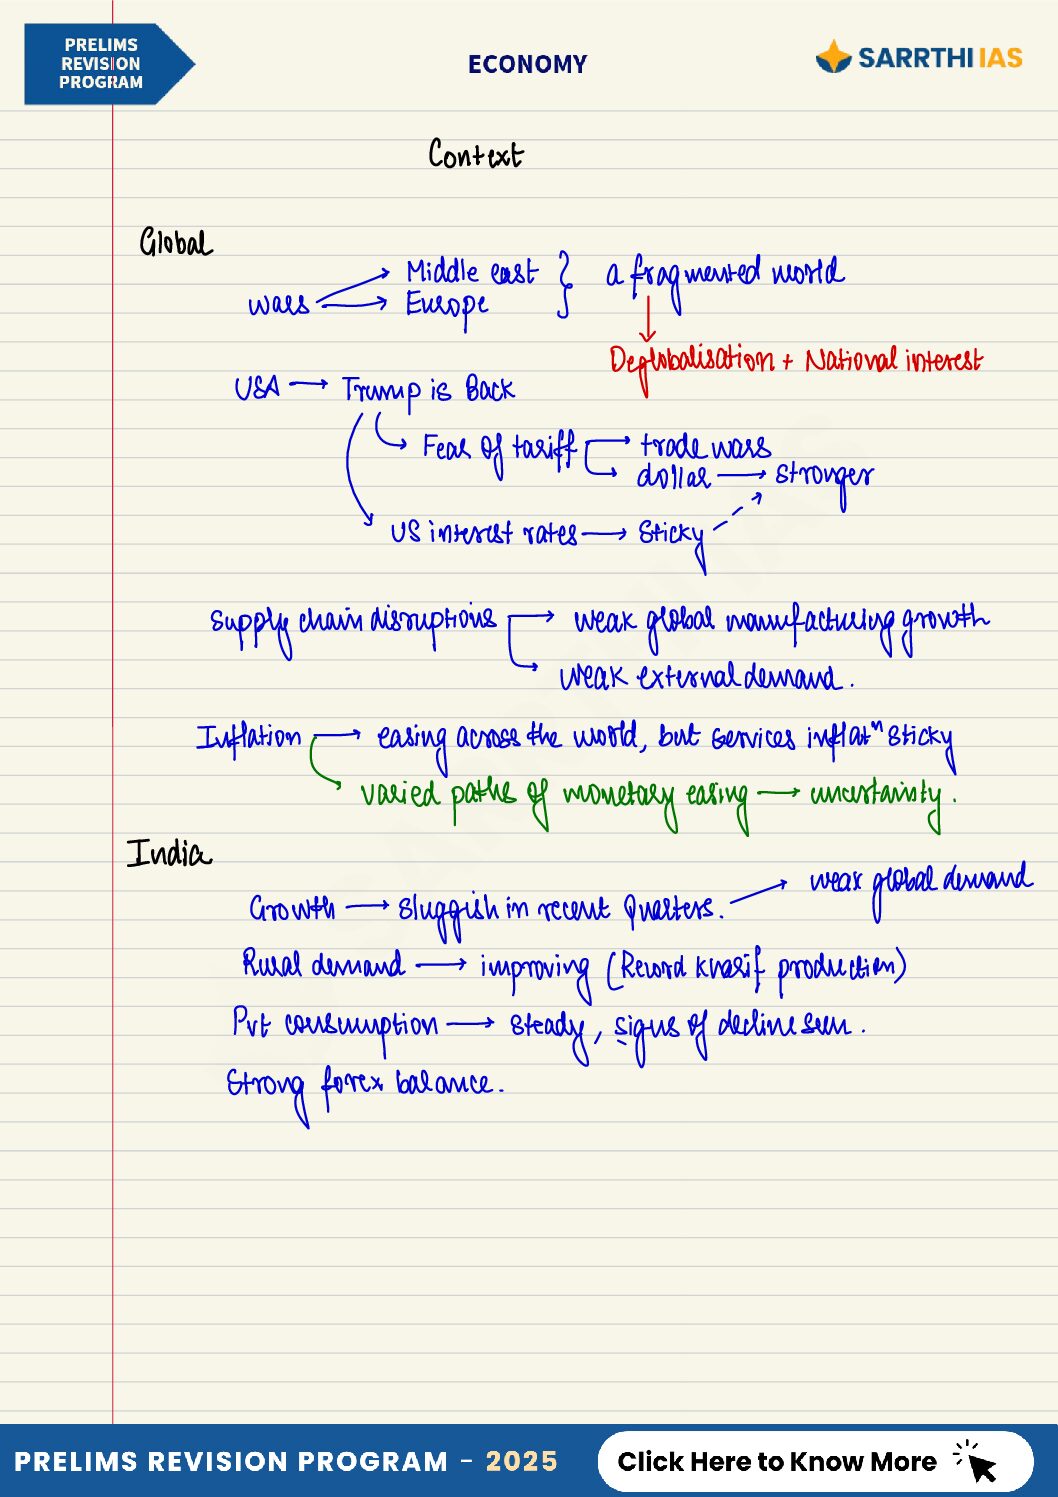 PRELIMS
REVISION
PROGRAM
ECONOMY
SARRTHI IAS
Context
Global
wars → Middle east } a fragmented world
→ Europe
Deglobalisation + National interest
USA → Trump is Back
Fear of tariff → trade wars
→ dollar → Stronger
US interest rates → Sticky
Supply chain disruptions → weak global manufacturing growth
→ weak external demand.
Inflation → easing across the world, but services inflatⁿ sticky
varied paths of monetary easing → uncertainty.
India
Growth → Sluggish in recent Quarters. → weak global demand
Rural demand → improving (Record kharif production)
Pvt consumption → steady, signs of decline seen.
Strong forex balance.
PRELIMS REVISION PROGRAM - 2025
Click Here to Know More